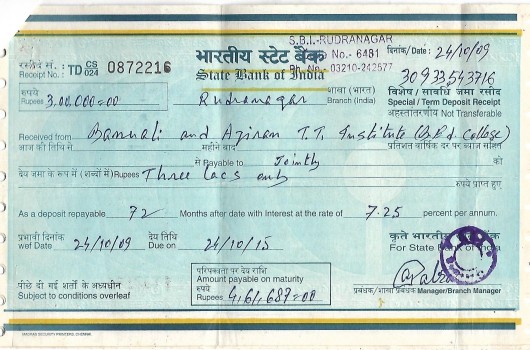 S.B.I.-RUDRANAGAR
No.- 6481
Ph. No.- 03210-242577
रसीद सं. : TD CS/024 0872216
Receipt No. :
भारतीय स्टेट बैंक
State Bank of India
दिनांक/Date : 24/10/09
30933543716
रुपये
Rupees 3,00,000=00
Rudranagar
शाखा (भारत)
Branch (India)
विशेष / सावधि जमा रसीद
Special / Term Deposit Receipt
अहस्तांतरणीय Not Transferable
Received from and T.T. Institute College)
आज की तिथि से महीने बाद प्रतिशत वार्षिक दर पर ब्याज सहित
से Payable to Jointly को
देय जमा के रूप में (शब्दों में) Rupees Three lacs only रुपये प्राप्त हुए
As a deposit repayable 72 Months after date with interest at the rate of 7.25 percent per annum.
प्रभावी दिनांक
wef Date 24/10/09
देय तिथि
Due on 24/10/15
कृते भारतीय स्टेट बैंक
For State Bank of India
पीछे दी गई शर्तों के अध्यधीन
Subject to conditions overleaf
परिपक्वता पर देय राशि
Amount payable on maturity
रुपये
Rupees 4,61,687=00
प्रबंधक/शाखा प्रबंधक Manager/Branch Manager